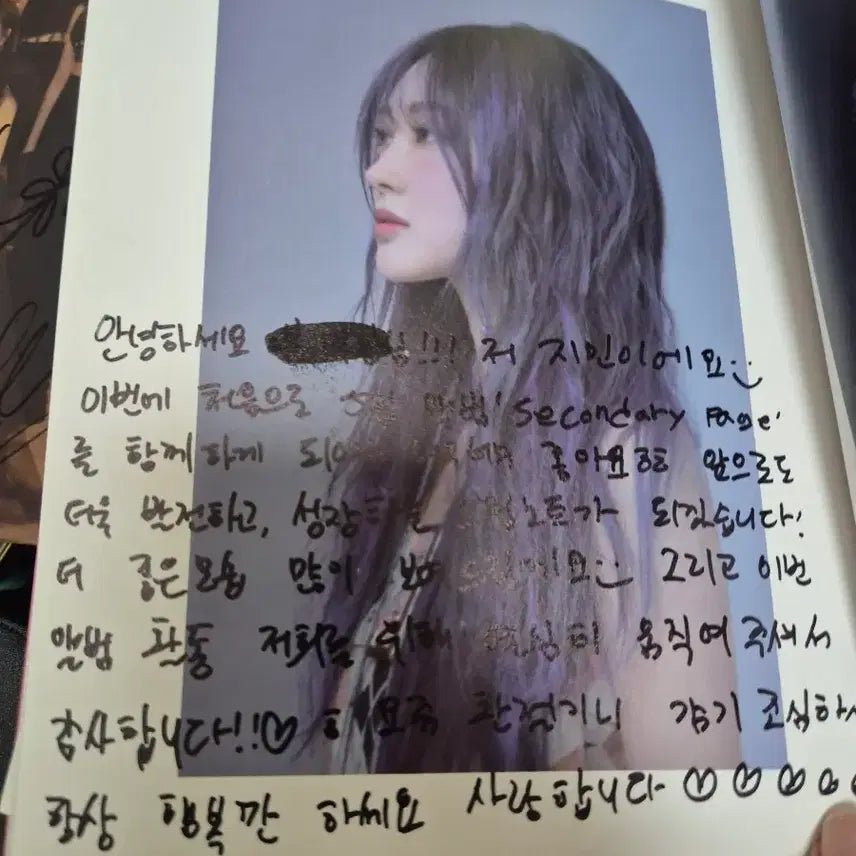 안녕하세요 !!! 저 지민이에요
이번에 처음으로 앨범 'Secondary Page'
를 함께하게 되어 좋아요ㅎㅎ 앞으로도
더욱 발전하고, 성장하는 가 되겠습니다!
더 좋은모습 많이 그리고 이번
앨범 활동 저희를 위해 열심히 움직여주셔서
감사합니다!!♡ 요즘 환절기니 감기 조심하시
항상 행복만 하세요 사랑합니다 ♡♡♡♡♡